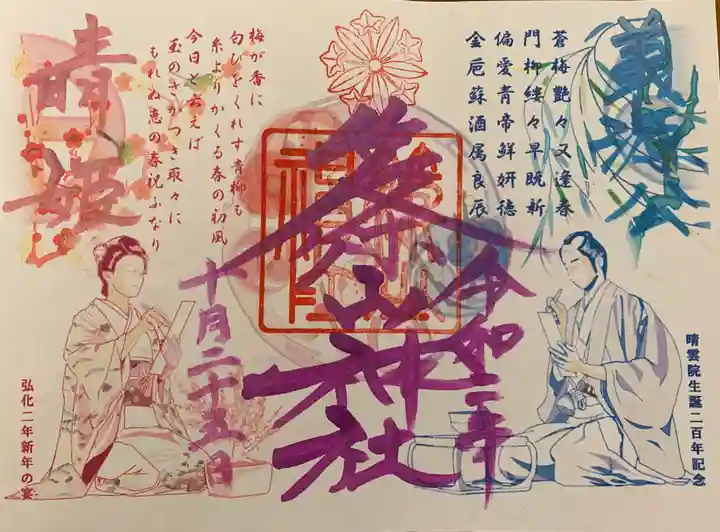 蒼梅艶々又逢春
門柳縷々早既新
偏愛青帝鮮妍穂
金巵蘇酒属良辰
梅が香に
匂ひをくれす青柳も
糸よりかくる春の初風
今日と云えば
玉のさかつき取々に
もれぬ恵の春祝ふなり
晴姫
山神社
令和二年
十月二十五日
晴雲院生誕二百年記念
弘化二年新年の宴